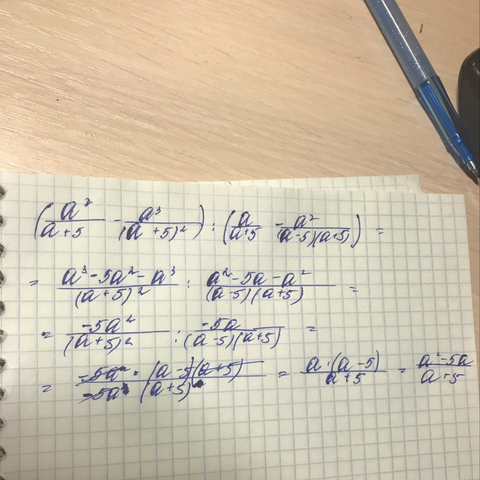 (a²/(a+5) - a³/(a+5)²) : (a/(a+5) - a²/((a-5)(a+5))) =
= (a³-5a²-a³)/(a+5)² : (a²-5a-a²)/((a-5)(a+5)) =
= -5a²/(a+5)² : -5a/((a-5)(a+5)) =
= (-5a² · (a-5)(a+5))/(-5a (a+5)) = a·(a-5)/(a+5) = (a²-5a)/(a+5)